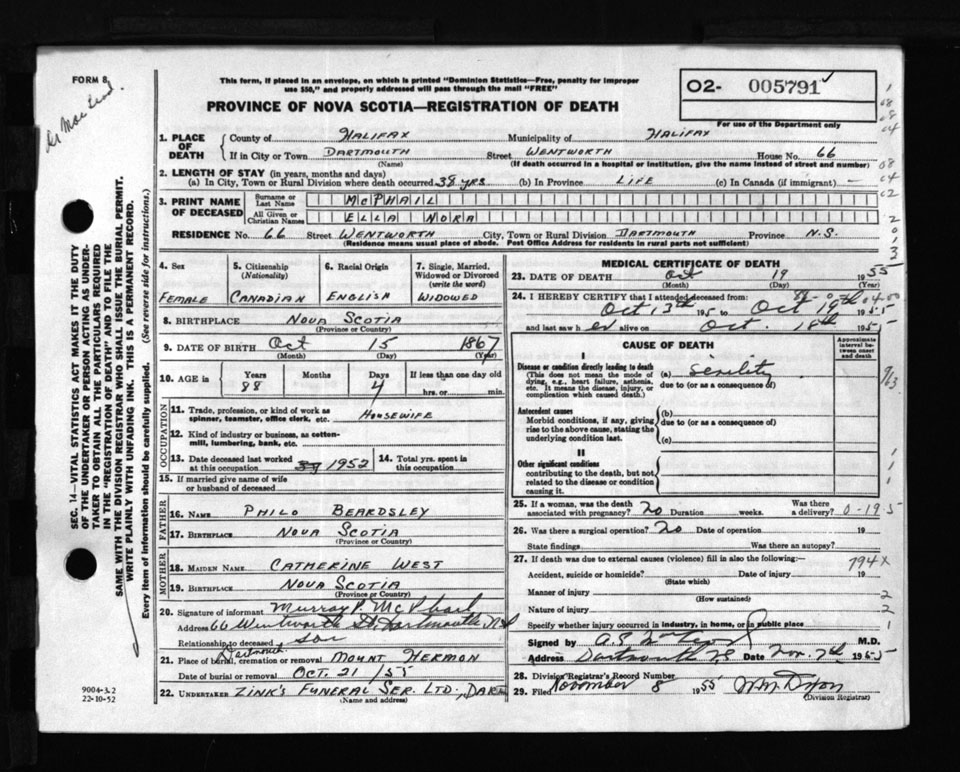 FORM 8
Dr Mac Leod
This form, if placed in an envelope, on which is printed "Dominion Statistics—Free, penalty for improper
use $50," and properly addressed will pass through the mail "FREE"
PROVINCE OF NOVA SCOTIA—REGISTRATION OF DEATH
02- 005791
For use of the Department only
1. PLACE OF DEATH County of HALIFAX Municipality of HALIFAX
If in City or Town DARTMOUTH Street WENTWORTH House No. 66
(Name) (If death occurred in a hospital or institution, give the name instead of street and number)
2. LENGTH OF STAY (in years, months and days)
(a) In City, Town or Rural Division where death occurred 38 YRS (b) In Province LIFE (c) In Canada (if immigrant) —
3. PRINT NAME OF DECEASED Surname or Last Name McPHAIL
All Given or Christian Names ELLA NORA
RESIDENCE No. 66 Street WENTWORTH City, Town or Rural Division DARTMOUTH Province N.S.
(Residence means usual place of abode. Post Office Address for residents in rural parts not sufficient)
4. Sex FEMALE
5. Citizenship (Nationality) CANADIAN
6. Racial Origin ENGLISH
7. Single, Married, Widowed or Divorced (write the word) WIDOWED
8. BIRTHPLACE NOVA SCOTIA
(Province or Country)
9. DATE OF BIRTH Oct 15 1867
(Month) (Day) (Year)
10. AGE in Years 88 Months Days 4 If less than one day old hrs. or min.
OCCUPATION
11. Trade, profession, or kind of work as spinner, teamster, office clerk, etc. HOUSEWIFE
12. Kind of industry or business, as cotton-mill, lumbering, bank, etc.
13. Date deceased last worked at this occupation 1952
14. Total yrs. spent in this occupation
15. If married give name of wife or husband of deceased
FATHER
16. NAME PHILO BEARDSLEY
17. BIRTHPLACE NOVA SCOTIA
(Province or Country)
MOTHER
18. MAIDEN NAME CATHERINE WEST
19. BIRTHPLACE NOVA SCOTIA
(Province or Country)
20. Signature of informant Murray P. McPhail
Address 66 Wentworth St, Dartmouth, N.S
Relationship to deceased son
21. Place of burial, cremation or removal Dartmouth MOUNT HERMON
Date of burial or removal OCT. 21/55
22. UNDERTAKER ZINK'S FUNERAL SER. LTD., DART
(Name and address)
MEDICAL CERTIFICATE OF DEATH
23. DATE OF DEATH Oct 19 1955
(Month) (Day) (Year)
24. I HEREBY CERTIFY that I attended deceased from:
Oct 13th 195 to Oct 19th 1955
and last saw her alive on Oct. 18th 1955
CAUSE OF DEATH
Approximate interval between onset and death
I
Disease or condition directly leading to death (a) Senility
(This does not mean the mode of dying, e.g., heart failure, asthenia, etc. It means the disease, injury, or complication which caused death.)
due to (or as a consequence of)
Antecedent causes (b)
Morbid conditions, if any, giving rise to the above cause, stating the underlying condition last.
due to (or as a consequence of)
(c)
II
Other significant conditions
contributing to the death, but not related to the disease or condition causing it.
25. If a woman, was the death associated with pregnancy? no Duration weeks. Was there a delivery?
26. Was there a surgical operation? no Date of operation 19
State findings Was there an autopsy?
27. If death was due to external causes (violence) fill in also the following:
794X
Accident, suicide or homicide? Date of injury 19
(State which)
Manner of injury
(How sustained)
Nature of injury
Specify whether injury occurred in industry, in home, or in public place
Signed by M.D.
Address Dartmouth NS Date Nov. 7th 1955
28. Division Registrar's Record Number
29. Filed November 8 1955
(Division Registrar)
SEC. 14—VITAL STATISTICS ACT MAKES IT THE DUTY
OF THE UNDERTAKER OR PERSON ACTING AS UNDER-
TAKER TO OBTAIN ALL THE PARTICULARS REQUIRED
IN THE "REGISTRATION OF DEATH" AND TO FILE THE
SAME WITH THE DIVISION REGISTRAR WHO SHALL ISSUE THE BURIAL PERMIT.
WRITE PLAINLY WITH UNFADING INK. THIS IS A PERMANENT RECORD.
Every item of information should be carefully supplied. (See reverse side for instructions.)
9004-3.2
22-10-52